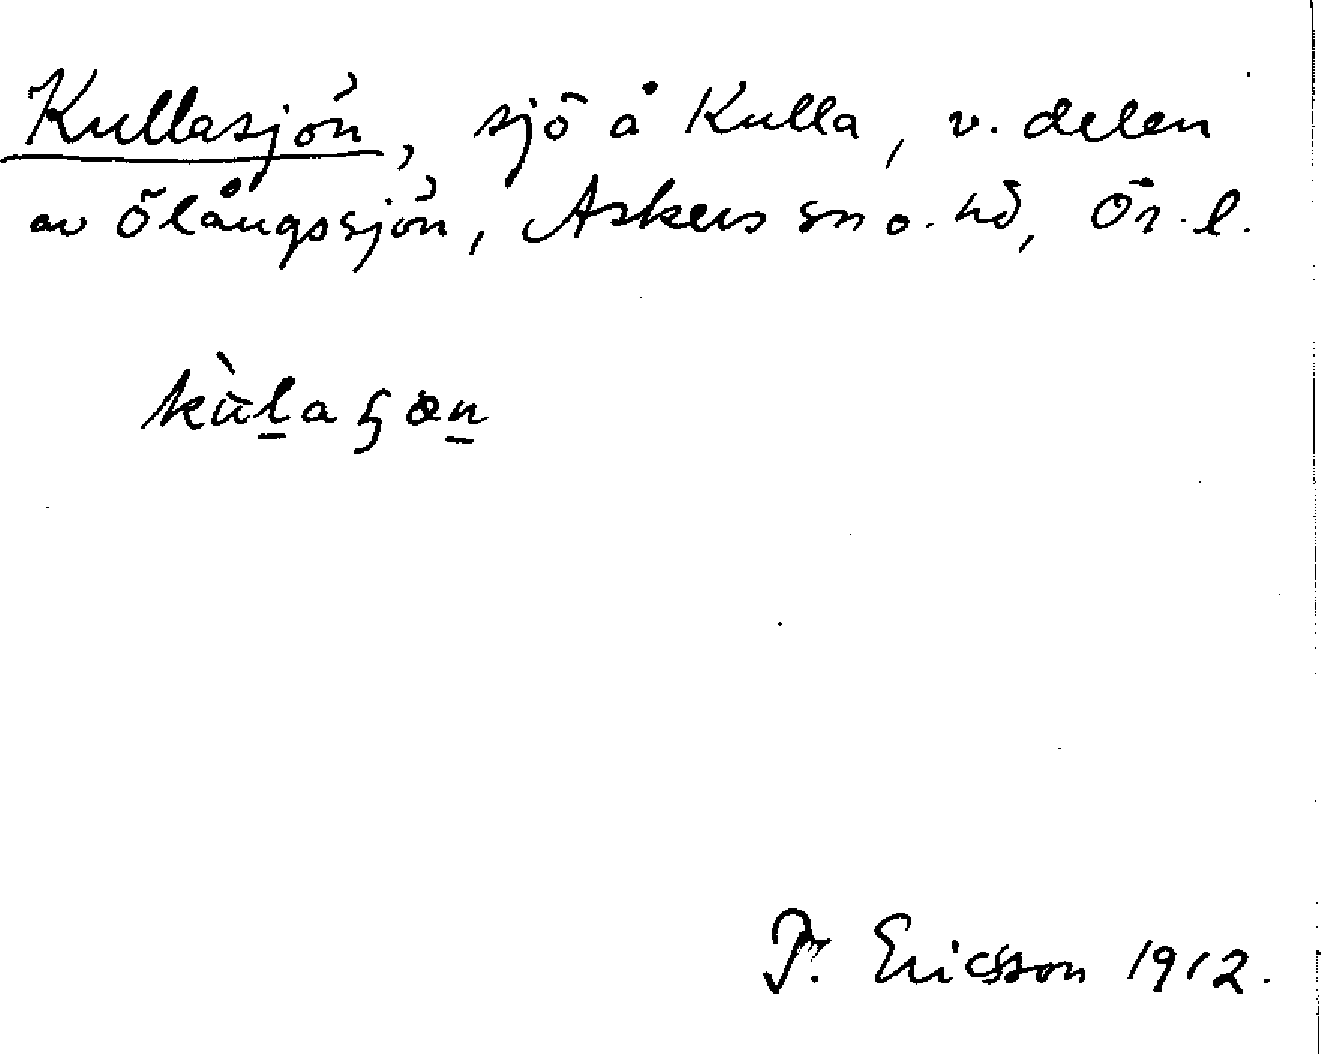 Kullasjön, sjö å Kulla, v. delen
av Ölångssjön, Askers sn o. hd, Ör. l.
kùlaʂøn
P. Ericsson 1912.